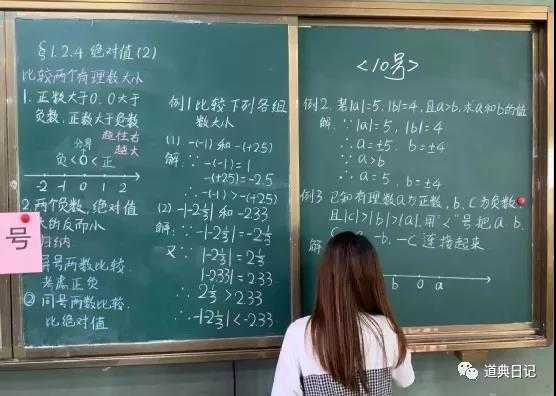 §1.2.4 绝对值(2)
比较两个有理数大小
1. 正数大于0, 0大于
负数, 正数大于负数
分界
越往右
越大
负<0<正
-2 -1 0 1 2
2. 两个负数, 绝对值
大的反而小
归纳
异号两数比较,
考虑正负
② 同号两数比较,
比绝对值
号
例1 比较下列各组
数大小
(1) -(-1) 和 -(+2.5)
解: ∵ -(-1)=1
-(+2.5)=-2.5
∴ -(-1)>-(+2.5)
(2) -|-2⅓| 和 -2.33
解: ∵ -|-2⅓|=-2⅓
又∵ |-2⅓|=2⅓
|-2.33|=2.33
∵ 2⅓>2.33
∴ -|-2⅓|<-2.33
<10号>
例2. 若|a|=5, |b|=4, 且a>b, 求a和b的值
解: ∵ |a|=5, |b|=4
∴ a=±5, b=±4
∵ a>b
∴ a=5, b=±4
例3 已知有理数a为正数, b、c为负数,
且|c|>|b|>|a|, 用"<"号把a、b、
-b、-c连接起来
解
b 0 a
道典日记